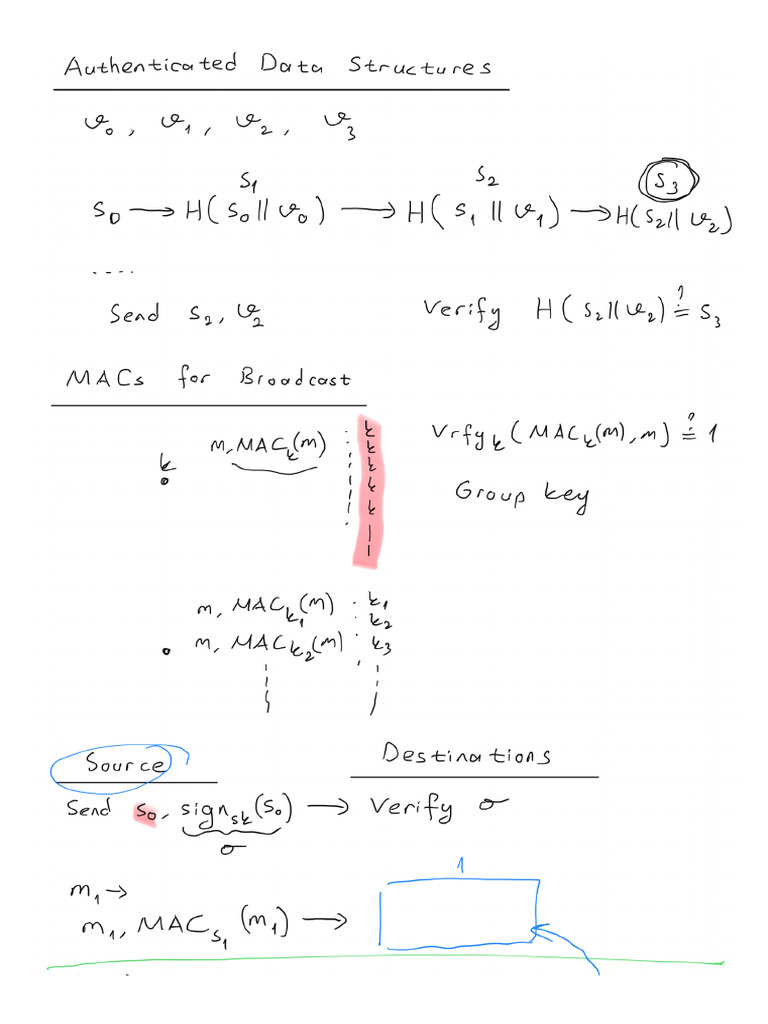 Authenticated Data Structures
v₀, v₁, v₂, v₃
S₁ S₂ S₃
S₀ → H(S₀||v₀) → H(S₁||v₁) → H(S₂||v₂)
....
Send S₂, v₂ Verify H(S₂||v₂) ≟ S₃
MACs for Broadcast
m, MACₖ(m)
k
k
k
k
k
k
Vrfyₖ(MACₖ(m), m) ≟ 1
Group key
m, MAC_k₁(m) k₁
k₂
m, MAC_k₂(m) k₃
Source Destinations
Send S₀, sign_sk(S₀) → Verify σ
σ
1
m₁ →
m₁, MAC_S₁(m₁) →